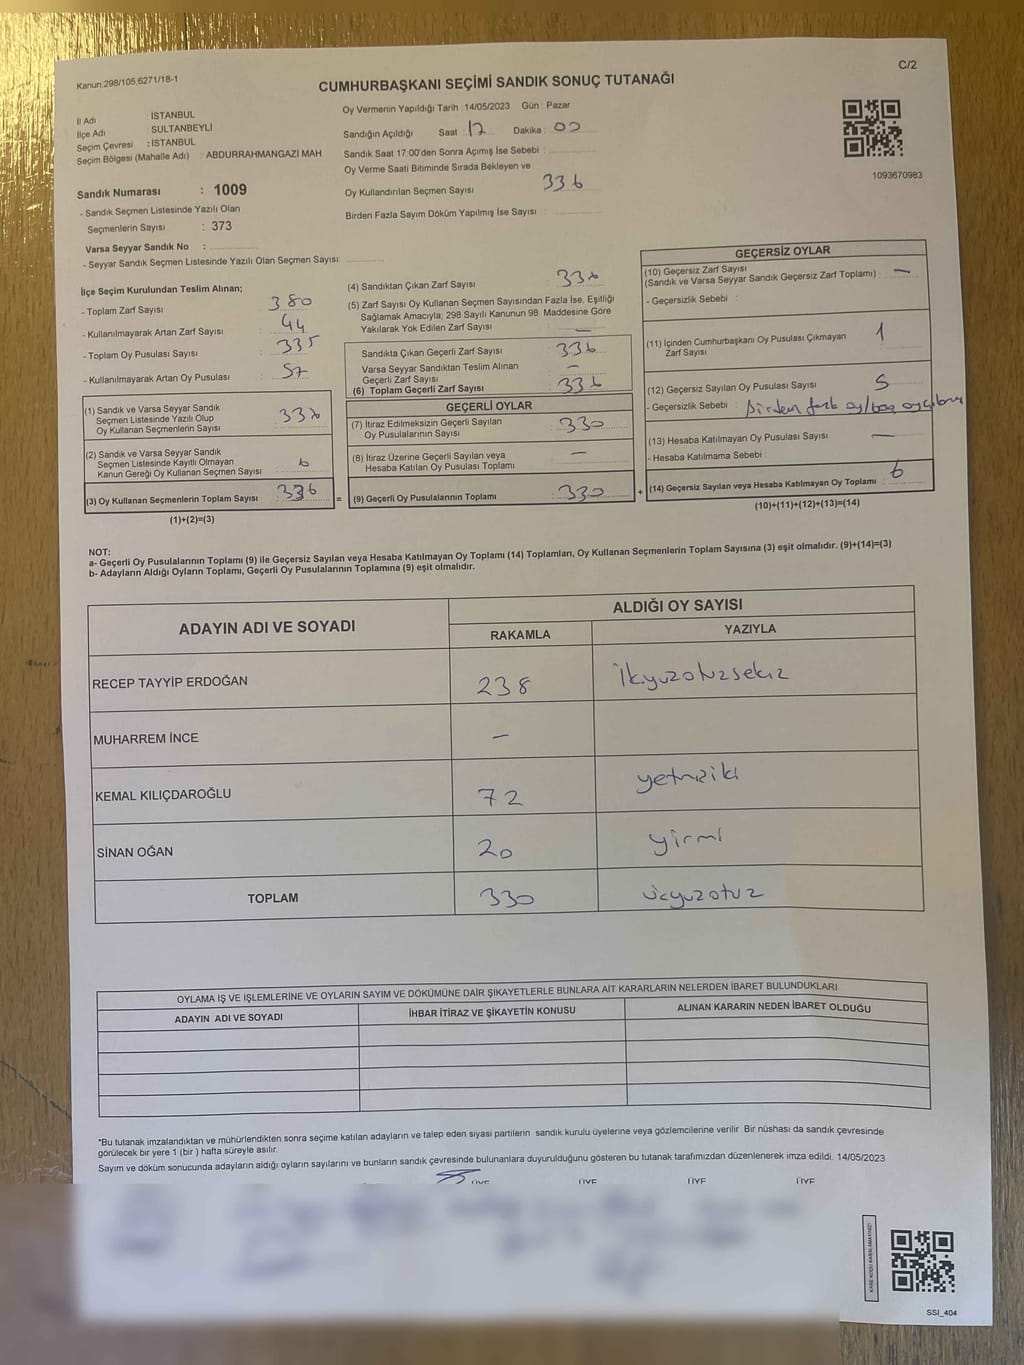 Kanun:298/105;6271/18-1
C/2
CUMHURBAŞKANI SEÇİMİ SANDIK SONUÇ TUTANAĞI
İl Adı : İSTANBUL
İlçe Adı : SULTANBEYLİ
Seçim Çevresi : İSTANBUL
Seçim Bölgesi (Mahalle Adı) : ABDURRAHMANGAZİ MAH
Sandık Numarası : 1009
- Sandık Seçmen Listesinde Yazılı Olan
Seçmenlerin Sayısı : 373
Varsa Seyyar Sandık No :
- Seyyar Sandık Seçmen Listesinde Yazılı Olan Seçmen Sayısı:
Oy Vermenin Yapıldığı Tarih :14/05/2023 Gün : Pazar
Sandığın Açıldığı Saat 17 Dakika : 00
Sandık Saat 17:00'den Sonra Açımış İse Sebebi :
Oy Verme Saati Bitiminde Sırada Bekleyen ve
Oy Kullandırılan Seçmen Sayısı 336
Birden Fazla Sayım Döküm Yapılmış İse Sayısı :
1093670983
İlçe Seçim Kurulundan Teslim Alınan;
- Toplam Zarf Sayısı : 380
- Kullanılmayarak Artan Zarf Sayısı : 44
- Toplam Oy Pusulası Sayısı : 335
- Kullanılmayarak Artan Oy Pusulası : 57
(1) Sandık ve Varsa Seyyar Sandık
Seçmen Listesinde Yazılı Olup
Oy Kullanan Seçmenlerin Sayısı :
(2) Sandık ve Varsa Seyyar Sandık
Seçmen Listesinde Kayıtlı Olmayan
Kanun Gereği Oy Kullanan Seçmen Sayısı :
(3) Oy Kullanan Seçmenlerin Toplam Sayısı : 336
(1)+(2)=(3)
(4) Sandıktan Çıkan Zarf Sayısı : 336
(5) Zarf Sayısı Oy Kullanan Seçmen Sayısından Fazla İse, Eşitliği
Sağlamak Amacıyla; 298 Sayılı Kanunun 98. Maddesine Göre
Yakılarak Yok Edilen Zarf Sayısı : —
Sandıkta Çıkan Geçerli Zarf Sayısı : 336
Varsa Seyyar Sandıktan Teslim Alınan
Geçerli Zarf Sayısı : —
(6) Toplam Geçerli Zarf Sayısı : 336
GEÇERLİ OYLAR
(7) İtiraz Edilmeksizin Geçerli Sayılan
Oy Pusulalarının Sayısı : 330
(8) İtiraz Üzerine Geçerli Sayılan veya
Hesaba Katılan Oy Pusulası Toplamı : —
= (9) Geçerli Oy Pusulalarının Toplamı : 330
GEÇERSİZ OYLAR
(10) Geçersiz Zarf Sayısı
(Sandık ve Varsa Seyyar Sandık Geçersiz Zarf Toplamı) : —
- Geçersizlik Sebebi :
(11) İçinden Cumhurbaşkanı Oy Pusulası Çıkmayan
Zarf Sayısı : 1
(12) Geçersiz Sayılan Oy Pusulası Sayısı : 5
- Geçersizlik Sebebi : Birden fazla oy/boş
(13) Hesaba Katılmayan Oy Pusulası Sayısı : —
- Hesaba Katılmama Sebebi :
+ (14) Geçersiz Sayılan veya Hesaba Katılmayan Oy Toplamı : 6
(10)+(11)+(12)+(13)=(14)
NOT:
a- Geçerli Oy Pusulalarının Toplamı (9) ile Geçersiz Sayılan veya Hesaba Katılmayan Oy Toplamı (14) Toplamları, Oy Kullanan Seçmenlerin Toplam Sayısına (3) eşit olmalıdır. (9)+(14)=(3)
b- Adayların Aldığı Oyların Toplamı, Geçerli Oy Pusulalarının Toplamına (9) eşit olmalıdır.
ADAYIN ADI VE SOYADI
ALDIĞI OY SAYISI
RAKAMLA YAZIYLA
RECEP TAYYİP ERDOĞAN 238 İkiyüzotuzsekiz
MUHARREM İNCE —
KEMAL KILIÇDAROĞLU 72 yetmişiki
SİNAN OĞAN 20 yirmi
TOPLAM 330 üçyüzotuz
OYLAMA İŞ VE İŞLEMLERİNE VE OYLARIN SAYIM VE DÖKÜMÜNE DAİR ŞİKAYETLERLE BUNLARA AİT KARARLARIN NELERDEN İBARET BULUNDUKLARI
ADAYIN ADI VE SOYADI İHBAR İTİRAZ VE ŞİKAYETİN KONUSU ALINAN KARARIN NEDEN İBARET OLDUĞU
*Bu tutanak imzalandıktan ve mühürlendikten sonra seçime katılan adayların ve talep eden siyasi partilerin sandık kurulu üyelerine veya gözlemcilerine verilir Bir nüshası da sandık çevresinde
görülecek bir yere 1 (bir ) hafta süreyle asılır.
Sayım ve döküm sonucunda adayların aldığı oyların sayılarını ve bunların sandık çevresinde bulunanlara duyurulduğunu gösteren bu tutanak tarafımızdan düzenlenerek imza edildi. 14/05/2023
ÜYE ÜYE ÜYE ÜYE
SSI_404